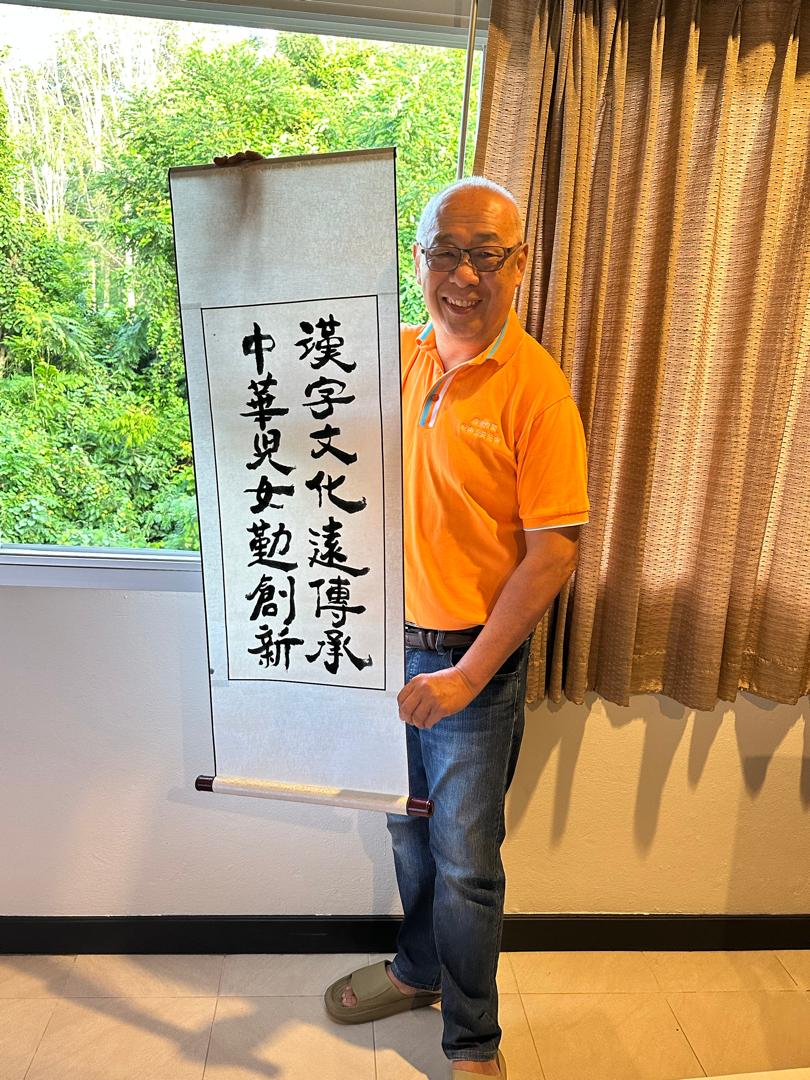 漢字文化遠傳承
中華兒女勤創新